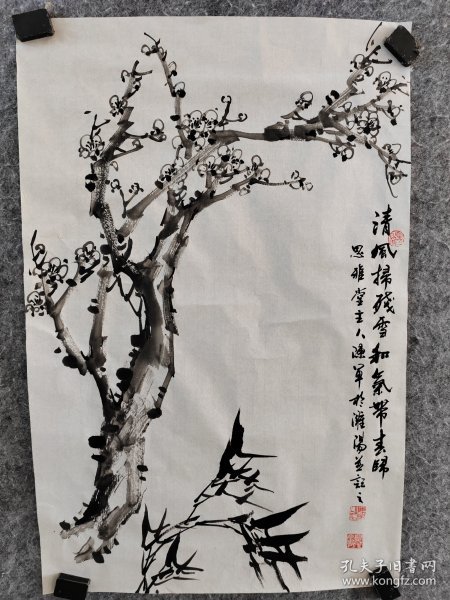 清風掃殘雪和氣帶春歸
思雅堂主人濕軍於濰湯並記之
孔夫子旧书网
www.kongfz.com